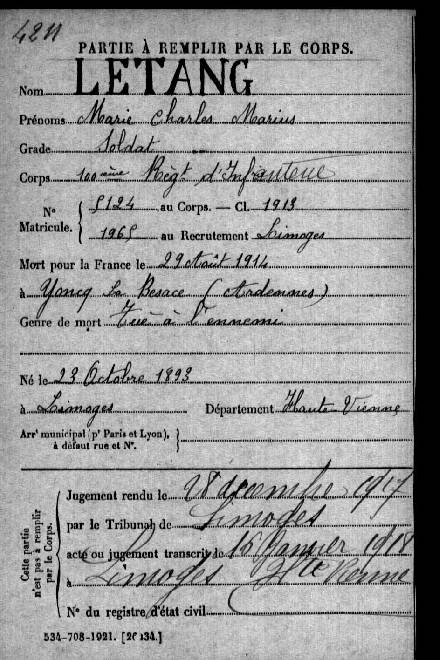 4211
PARTIE À REMPLIR PAR LE CORPS.
Nom LETANG
Prénoms Marie Charles Marius
Grade Soldat
Corps 100ème Régt d'Infanterie
N° Matricule. { 5124 au Corps. — Cl. 1913
1965 au Recrutement Limoges
Mort pour la France le 29 Août 1914
à Yoncq La Besace (Ardennes)
Genre de mort Tué à l'ennemi
Né le 23 Octobre 1893
à Limoges Département Haute Vienne
Arrt municipal (pr Paris et Lyon), à défaut rue et N°. }
Cette partie n'est pas à remplir par le Corps.
Jugement rendu le 28 décembre 1917
par le Tribunal de Limoges
acte ou jugement transcrit le 15 Janvier 1918
à Limoges Hte Vienne
N° du registre d'état civil
534-708-1921. [26434.]